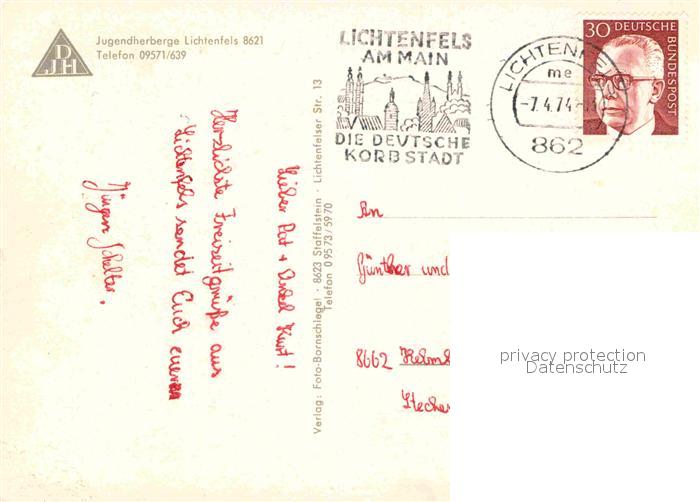 DJH
Jugendherberge Lichtenfels 8621
Telefon 09571/639
LICHTENFELS
AM MAIN
DIE DEUTSCHE
KORBSTADT
LICHTENFELS
me
-7.4.74
862
30 DEUTSCHE
BUNDESPOST
Lieber Pat + Onkel Kurt!
Herzlichste Freizeitgrüße aus
Lichtenfels sendet Euch euer
Jürgen
Verlag: Foto-Bornschlegel · 8623 Staffelstein · Lichtenfelser Str. 13
Telefon 09573/5970
An
Günther und
8662
privacy protection
Datenschutz